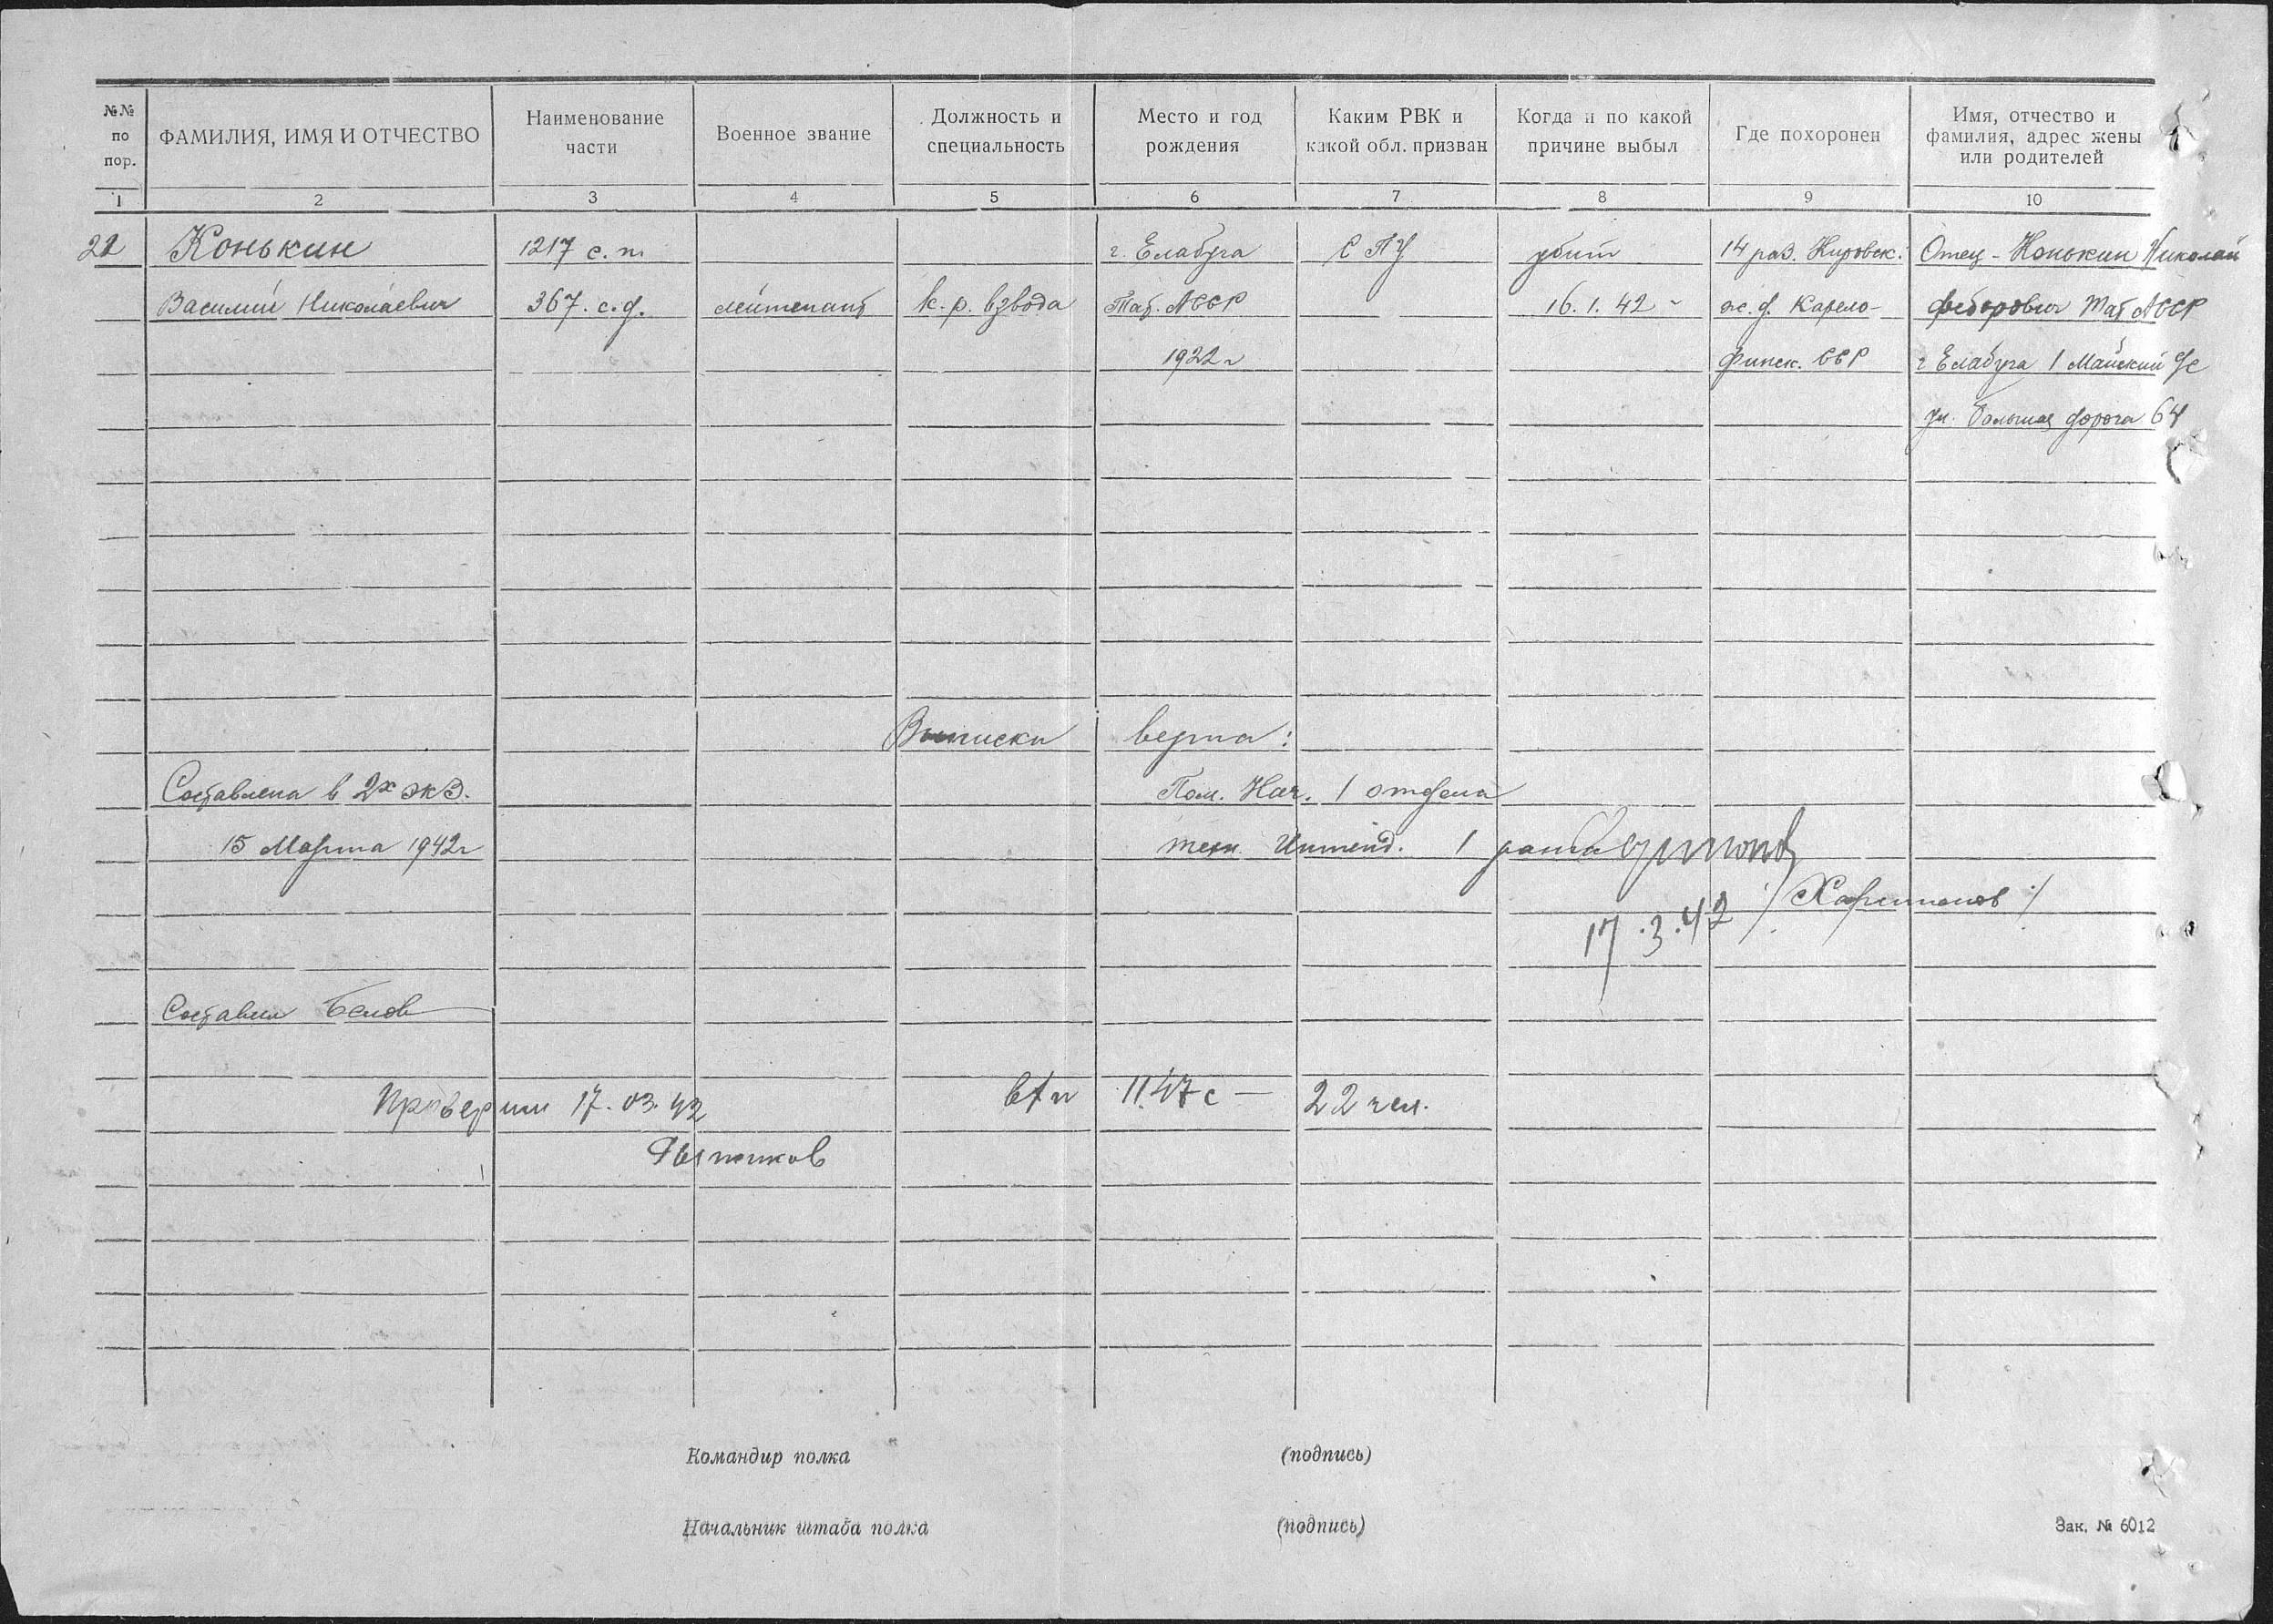 №№ по пор.
ФАМИЛИЯ, ИМЯ И ОТЧЕСТВО
Наименование части
Военное звание
Должность и специальность
Место и год рождения
Каким РВК и какой обл. призван
Когда и по какой причине выбыл
Где похоронен
Имя, отчество и фамилия, адрес жены или родителей
1 2 3 4 5 6 7 8 9 10
22 Конькин 1217 с. п. г. Елабуга С П У убит 14 раз. Кировск. Отец - Конькин Николай
Василий Николаевич 367. с. д. лейтенант к-р. взвода Тат. АССР 16. 1. 42 г ж. д. Карело- Федорович Тат АССР
1922 г Финск. ССР г Елабуга 1 Майский
ул. Большая дорога 64
Выписки верна:
Составлена в 2х экз. Пом. Нач. 1 отдела
15 Марта 1942 г техн. Интенд. 1 ранга
/ Харитонов /
17. 3. 42
Составил Белов
Проверил 17. 03. 42 1147 с — 22 чел.
Командир полка (подпись)
Начальник штаба полка (подпись)
Зак. № 6012